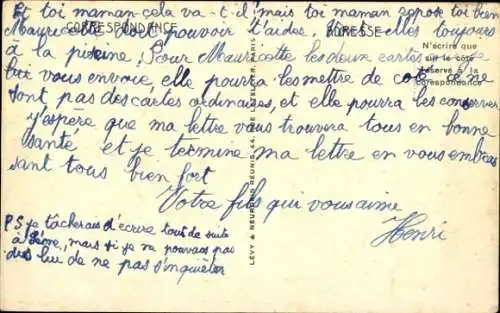 Et toi maman cela va-t-il mais toi maman repose toi bien
CORRESPONDANCE
ADRESSE
Mauricette doit pouvoir t'aider. Va elles toujours
à la piscine, Pour Mauricette les deux cartes que je
N'écrire que
sur le côté
réservé à la
correspondance
lui vous envoie, elle pourra les mettre de coté, ce ne
sont pas des cartes ordinaires, et elle pourra les conserver
j'espère que ma lettre vous trouvera tous en bonne
santé et je termine ma lettre en vous embras
sant tous bien fort
Votre fils qui vous aime
Henri
P.S je tâcherais d'écrire tout de suite
à Pème, mais si je ne pouvais pas
dis lui de ne pas s'inquiéter
LÉVY & NEURDEIN RÉUNIS, 44, RUE LETELLIER, PARIS